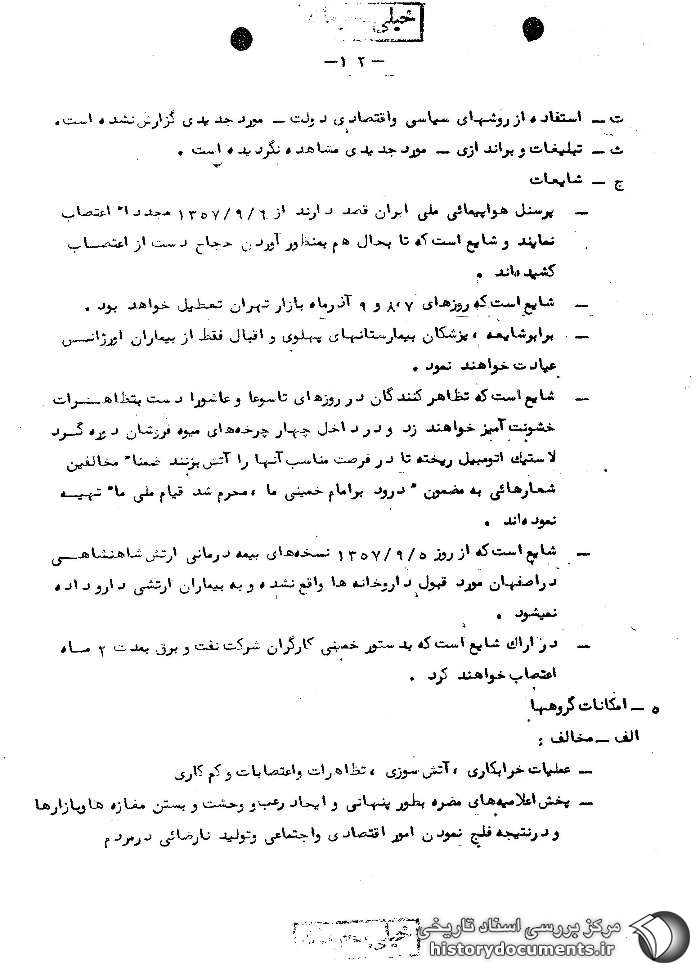 خیلی
-۱۲-
ت - استفاده از روشهای سیاسی واقتصادی دولت - مورد جدیدی گزارش نشده است.
ث - تبلیغات و براندازی - مورد جدیدی مشاهده نگردیده است .
ج - شایعات
- پرسنل هواپیمائی ملی ایران قصد دارند از ۱۳۵۷/۹/۶ مجددا" اعتصاب
نمایند و شایع است که تا بحال هم بمنظور آوردن حجاج دست از اعتصاب
کشیده‌اند .
- شایع است که روزهای ۸،۷ و ۹ آذرماه بازار تهران تعطیل خواهد بود .
- برابرشایعه ، پزشکان بیمارستانهای پهلوی و اقبال فقط از بیماران اورژانس
عیادت خواهند نمود .
- شایع است که تظاهر کنندگان در روزهای تاسوعا و عاشورا دست بتظاهرات
خشونت آمیز خواهند زد و در داخل چهار چرخه‌های میوه فروشان دوره گرد
لاستیک اتومبیل ریخته تا در فرصت مناسب آنها را آتش بزنند ضمنا" مخالفین
شعارهائی به مضمون "درود برامام خمینی ما ، محرم شد قیام ملی ما" تهیه
نموده‌اند .
- شایع است که از روز ۱۳۵۷/۹/۵ نسخه‌های بیمه درمانی ارتش شاهنشاهی
دراصفهان مورد قبول داروخانه ها واقع نشده و به بیماران ارتشی دارو داده
نمیشود .
- در اراک شایع است که بدستور خمینی کارگران شرکت نفت و برق بمدت ۲ ماه
اعتصاب خواهند کرد .
۵ - امکانات گروهها
الف - مخالف :
- عملیات خرابکاری ، آتش سوزی ، تظاهرات واعتصابات و کم کاری
- پخش اعلامیه‌های مضره بطور پنهانی و ایجاد رعب و وحشت و بستن مغازه ها وبازارها
و درنتیجه فلج نمودن امور اقتصادی واجتماعی وتولید نارضائی درمردم
خیلی
مرکز بررسی اسناد تاریخی
historydocuments.ir